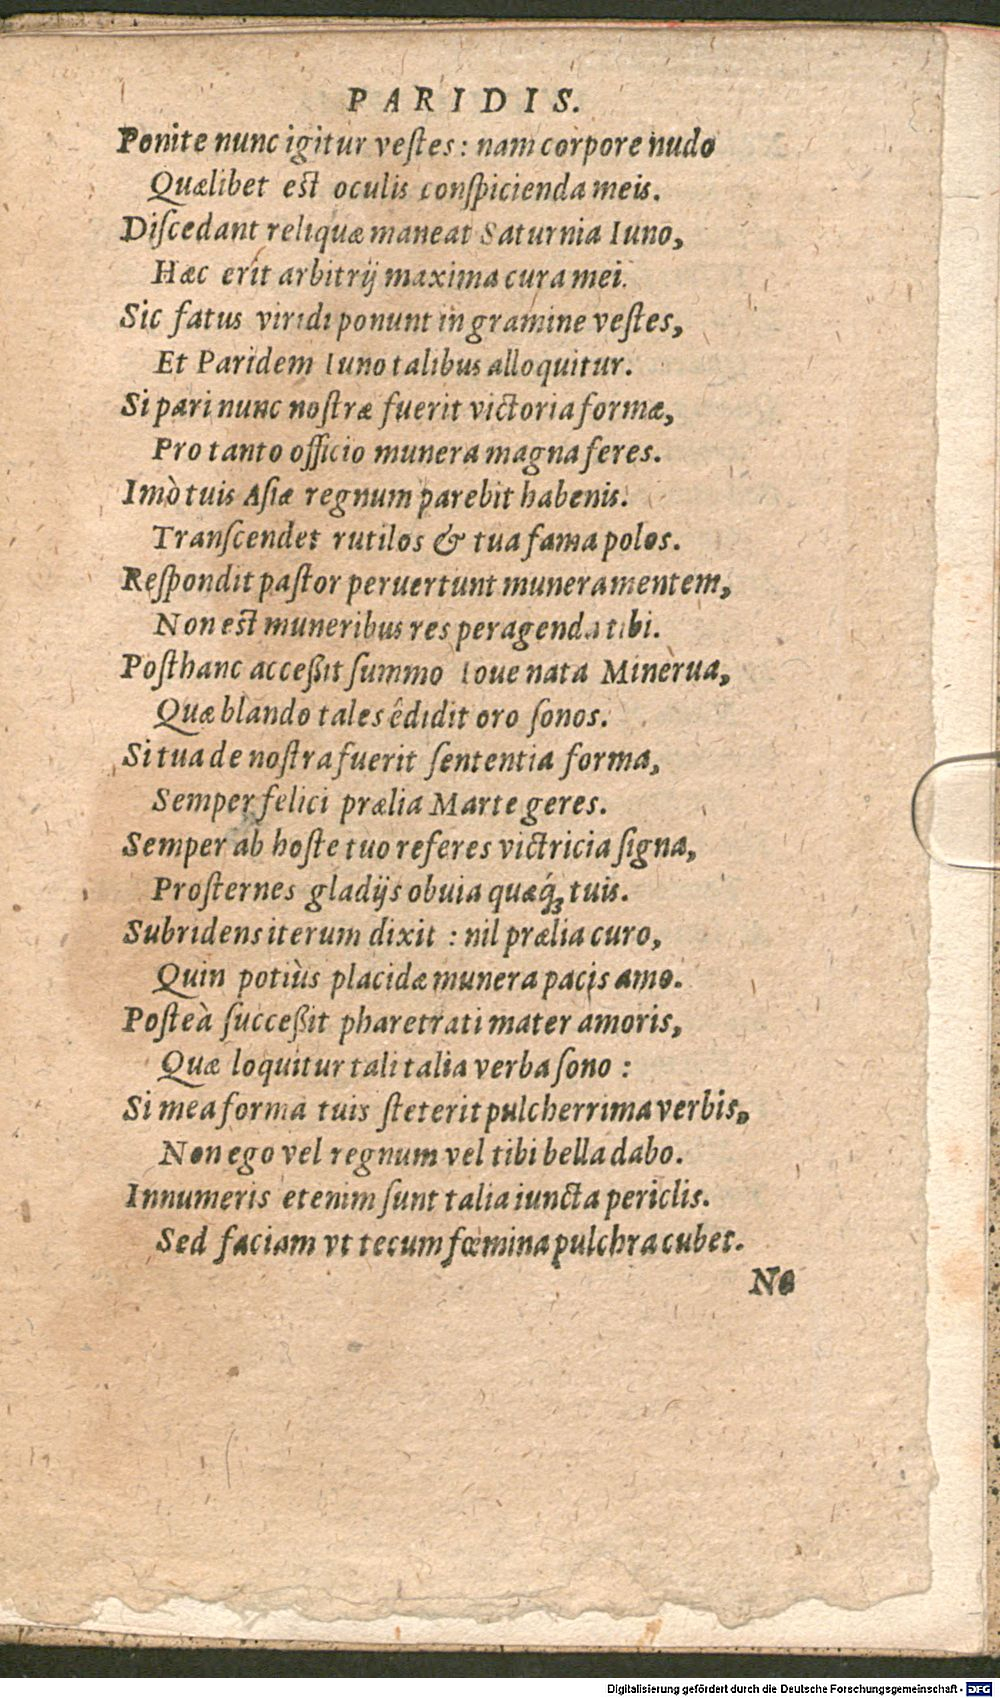 PARIDIS.
Ponite nunc igitur veſtes: nam corpore nudo
Quælibet est oculis conſpicienda meis.
Diſcedant reliquæ maneat Saturnia Iuno,
Hæc erit arbitrij maxima cura mei.
Sic fatus viridi ponunt in gramine veſtes,
Et Paridem Iuno talibus alloquitur.
Si pari nunc noſtræ fuerit victoria formæ,
Pro tanto officio munera magna feres.
Imò tuis Aſiæ regnum parebit habenis.
Tranſcendet rutilos & tua fama polos.
Reſpondit paſtor peruertunt munera mentem,
Non est muneribus res peragenda tibi.
Poſthanc acceßit ſummo Ioue nata Minerua,
Quæ blando tales êdidit oro ſonos.
Si tua de noſtra fuerit ſententia forma,
Semper felici prælia Marte geres.
Semper ab hoſte tuo referes victricia ſigna,
Proſternes gladijs obuia quæq́ꝫ tuis.
Subridens iterum dixit : nil prælia curo,
Quin potiùs placidæ munera pacis amo.
Poſteà ſucceßit pharetrati mater amoris,
Quæ loquitur tali talia verba ſono :
Si mea forma tuis ſteterit pulcherrima verbis,
Non ego vel regnum vel tibi bella dabo.
Innumeris etenim ſunt talia iuncta periclis.
Sed faciam vt tecum fœmina pulchra cubet.
Ne
Digitalisierung gefördert durch die Deutsche Forschungsgemeinschaft - DFG